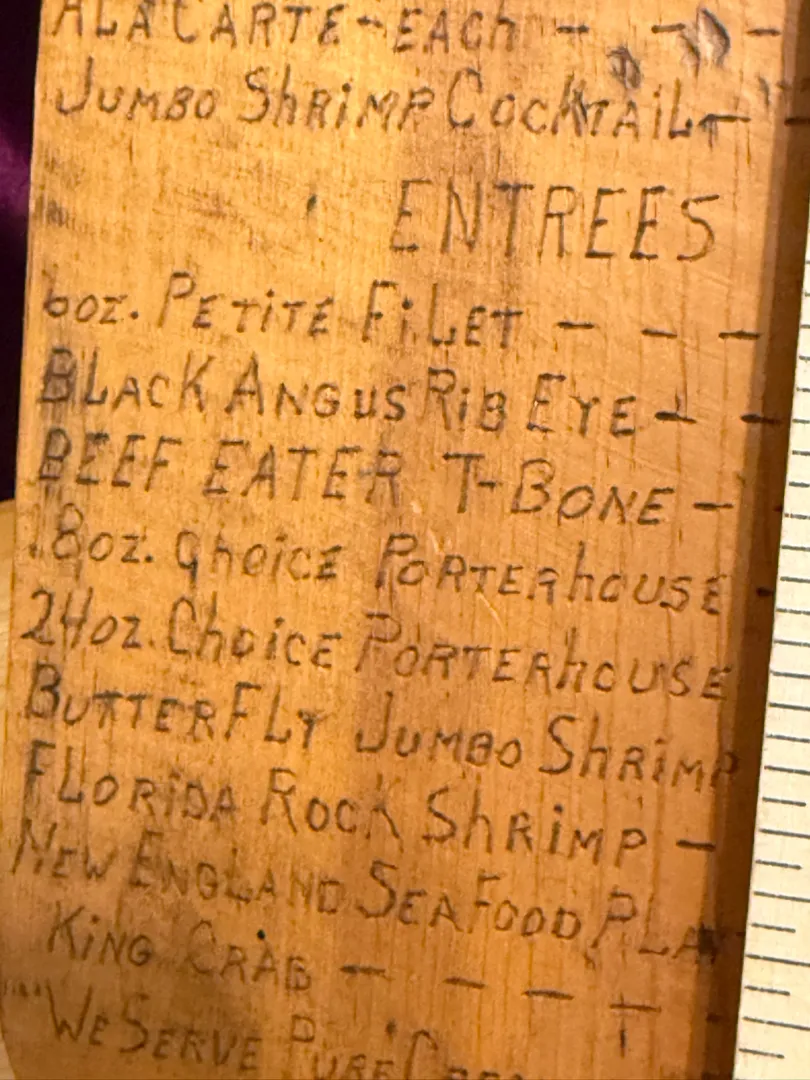 ALA CARTE - EACH - - -
JUMBO ShRiMP COCKTAiL - -
ENTREES
6oz. PETiTE FiLET - - -
BLACK ANGUS RiB EYE - -
BEEF EATER T-BONE -
18oz. ChOiCE PORTERhOUSE -
24oz. ChOiCE PORTERhOUSE
BUTTERFLY JUMBO ShRiMP
FLORiDA ROCK ShRiMP -
NEW ENGLAND SEAFOOD
KiNG CRAB - - - - -
"WE SERVE PURE